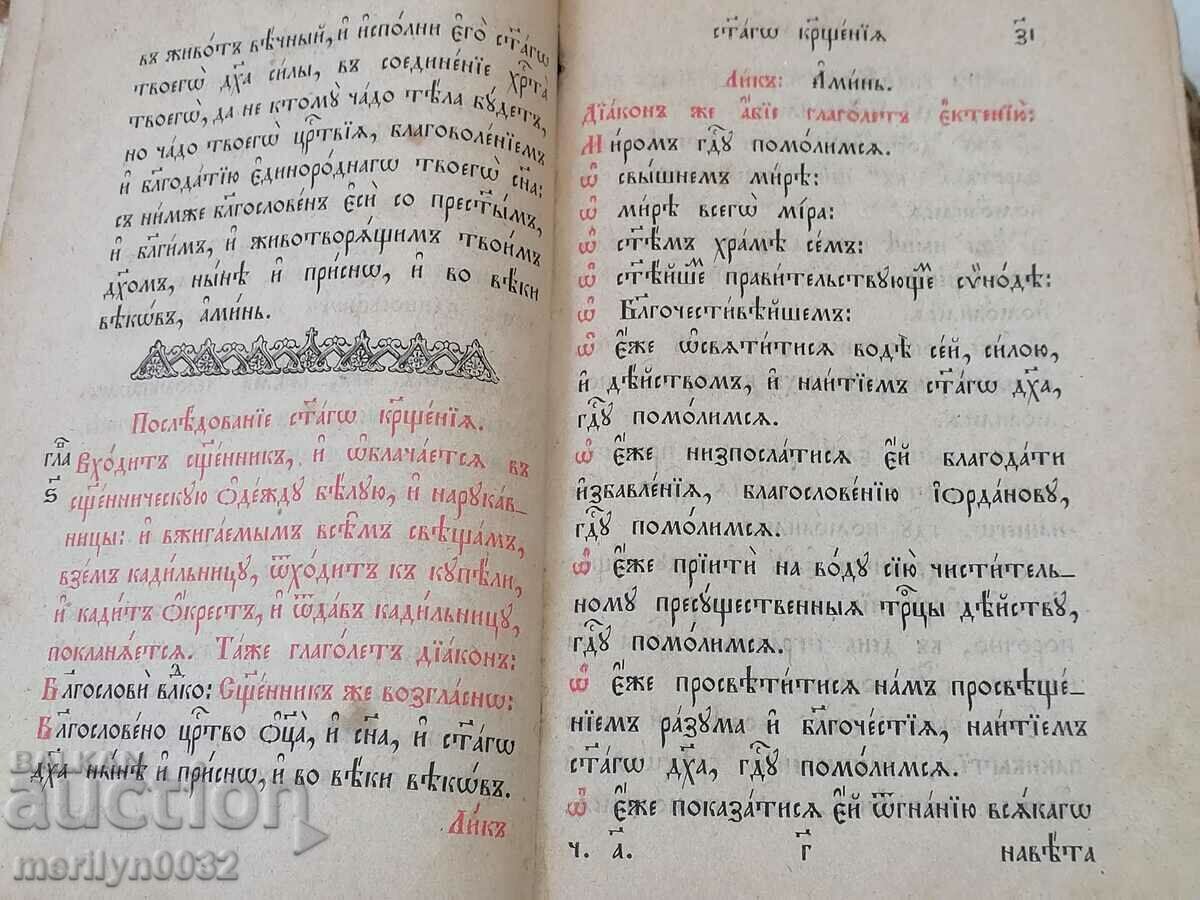 въ живо́тъ вѣ́чный, и҆ и҆спо́лни є҆го̀ ст҃а́гѡ
твоегѡ̀ дх҃а си́лы, въ соедине́нїе хрⷭ҇та̀
твоегѡ̀, да не ктомꙋ̀ ча́до тѣ́ла бꙋ́детъ,
но ча́до твоегѡ̀ црⷭ҇твїѧ, благоволе́нїемъ
и҆ блгⷣатїю є҆диноро́днагѡ твоегѡ̀ сн҃а:
съ ни́мже блгⷭ҇ове́нъ є҆сѝ со прест҃ы́мъ,
и҆ блг҃и́мъ, и҆ животворѧ́щимъ твои́мъ
дх҃омъ, ны́нѣ и҆ при́снѡ, и҆ во вѣ́ки
вѣкѡ́въ, а҆ми́нь.
Послѣ́дованїе ст҃а́гѡ крⷭ҇ще́нїѧ.
гла
Вхо́дитъ сщ҃е́нникъ, и҆ ѡ҆блача́етсѧ въ
сщ҃е́нническꙋю ѻ҆де́ждꙋ бѣ́лꙋю, и҆ нарꙋка́в-
ницы: и҆ вжига́ємымъ всѣ̑мъ свѣща́мъ,
взе́мъ кади́льницꙋ, ѿхо́дитъ къ кꙋпѣ́ли,
и҆ кади́тъ ѻ҆́крестъ, и҆ ѿда́въ кади́льницꙋ,
покланѧ́етсѧ. Та́же глаго́летъ дїа́конъ:
Благⷭ҇овѝ влⷣко: Сщ҃е́нникъ же возгла́снѡ:
Благⷭ҇ове́но црⷭ҇тво ѻ҆ц҃а̀, и҆ сн҃а, и҆ ст҃а́гѡ
дх҃а ны́нѣ и҆ при́снѡ, и҆ во вѣ́ки вѣкѡ́въ.
Ли́къ
ст҃а́гѡ крⷭ҇ще́нїѧ з҃і
Ли́къ: А҆ми́нь.
Дїа́конъ же а҆́бїе глаго́летъ є҆ктенїю̀:
Ми́ромъ гдⷭ҇ꙋ помо́лимсѧ.
Ѡ҆ свы́шнемъ ми́рѣ:
Ѡ҆ ми́рѣ всегѡ̀ мі́ра:
Ѡ҆ ст҃ѣ́мъ хра́мѣ се́мъ:
Ѡ҆ ст҃ѣ́йшемъ прави́тельствꙋющемъ сѷно́дѣ:
Ѡ҆ Благочести́вѣйшемъ:
Ѡ҆ є҆́же ѡ҆свѧти́тисѧ водѣ̀ се́й, си́лою,
и҆ дѣ́йствомъ, и҆ наи́тїемъ ст҃а́гѡ дх҃а,
гдⷭ҇ꙋ помо́лимсѧ.
Ѡ҆ є҆́же низпосла́тисѧ є҆́й благода́ти
и҆збавле́нїѧ, благослове́нїю і҆ѻрда́новꙋ,
гдⷭ҇ꙋ помо́лимсѧ.
Ѡ҆ є҆́же прїитѝ на во́дꙋ сїю̀ чисти́тель-
номꙋ пресꙋ́щественныѧ трⷪ҇цы дѣ́йствꙋ,
гдⷭ҇ꙋ помо́лимсѧ.
Ѡ҆ є҆́же просвѣти́тисѧ на́мъ просвѣще́-
нїемъ ра́зꙋма и҆ блгⷭ҇оче́стїѧ, наи́тїемъ
ст҃а́гѡ дх҃а, гдⷭ҇ꙋ помо́лимсѧ.
Ѡ҆ є҆́же показа́тисѧ є҆́й ѿгна́нїю всѧ́кагѡ
ч. а҃. г҃ навѣ́та
BALKAN
auction
merilyn0032